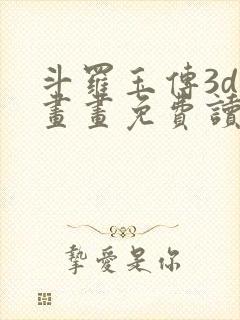 斗羅玉傳3d
畫畫免費讀
摯愛是你